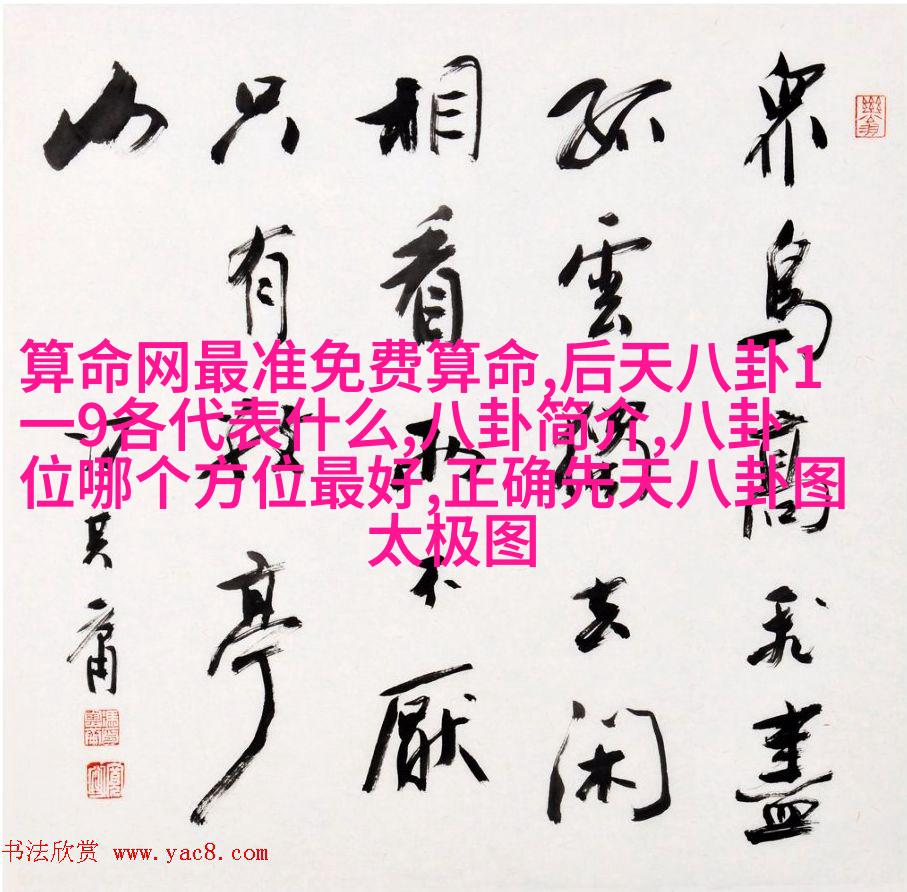 眾鳥高飛盡
孤雲獨去閑
相看兩不厭
只有敬亭山
其庸
算命网最准免费算命,后天八卦1
一9各代表什么,八卦简介,八卦
位哪个方位最好,正确先天八卦图
太极图
书法欣赏 www.yac8.com